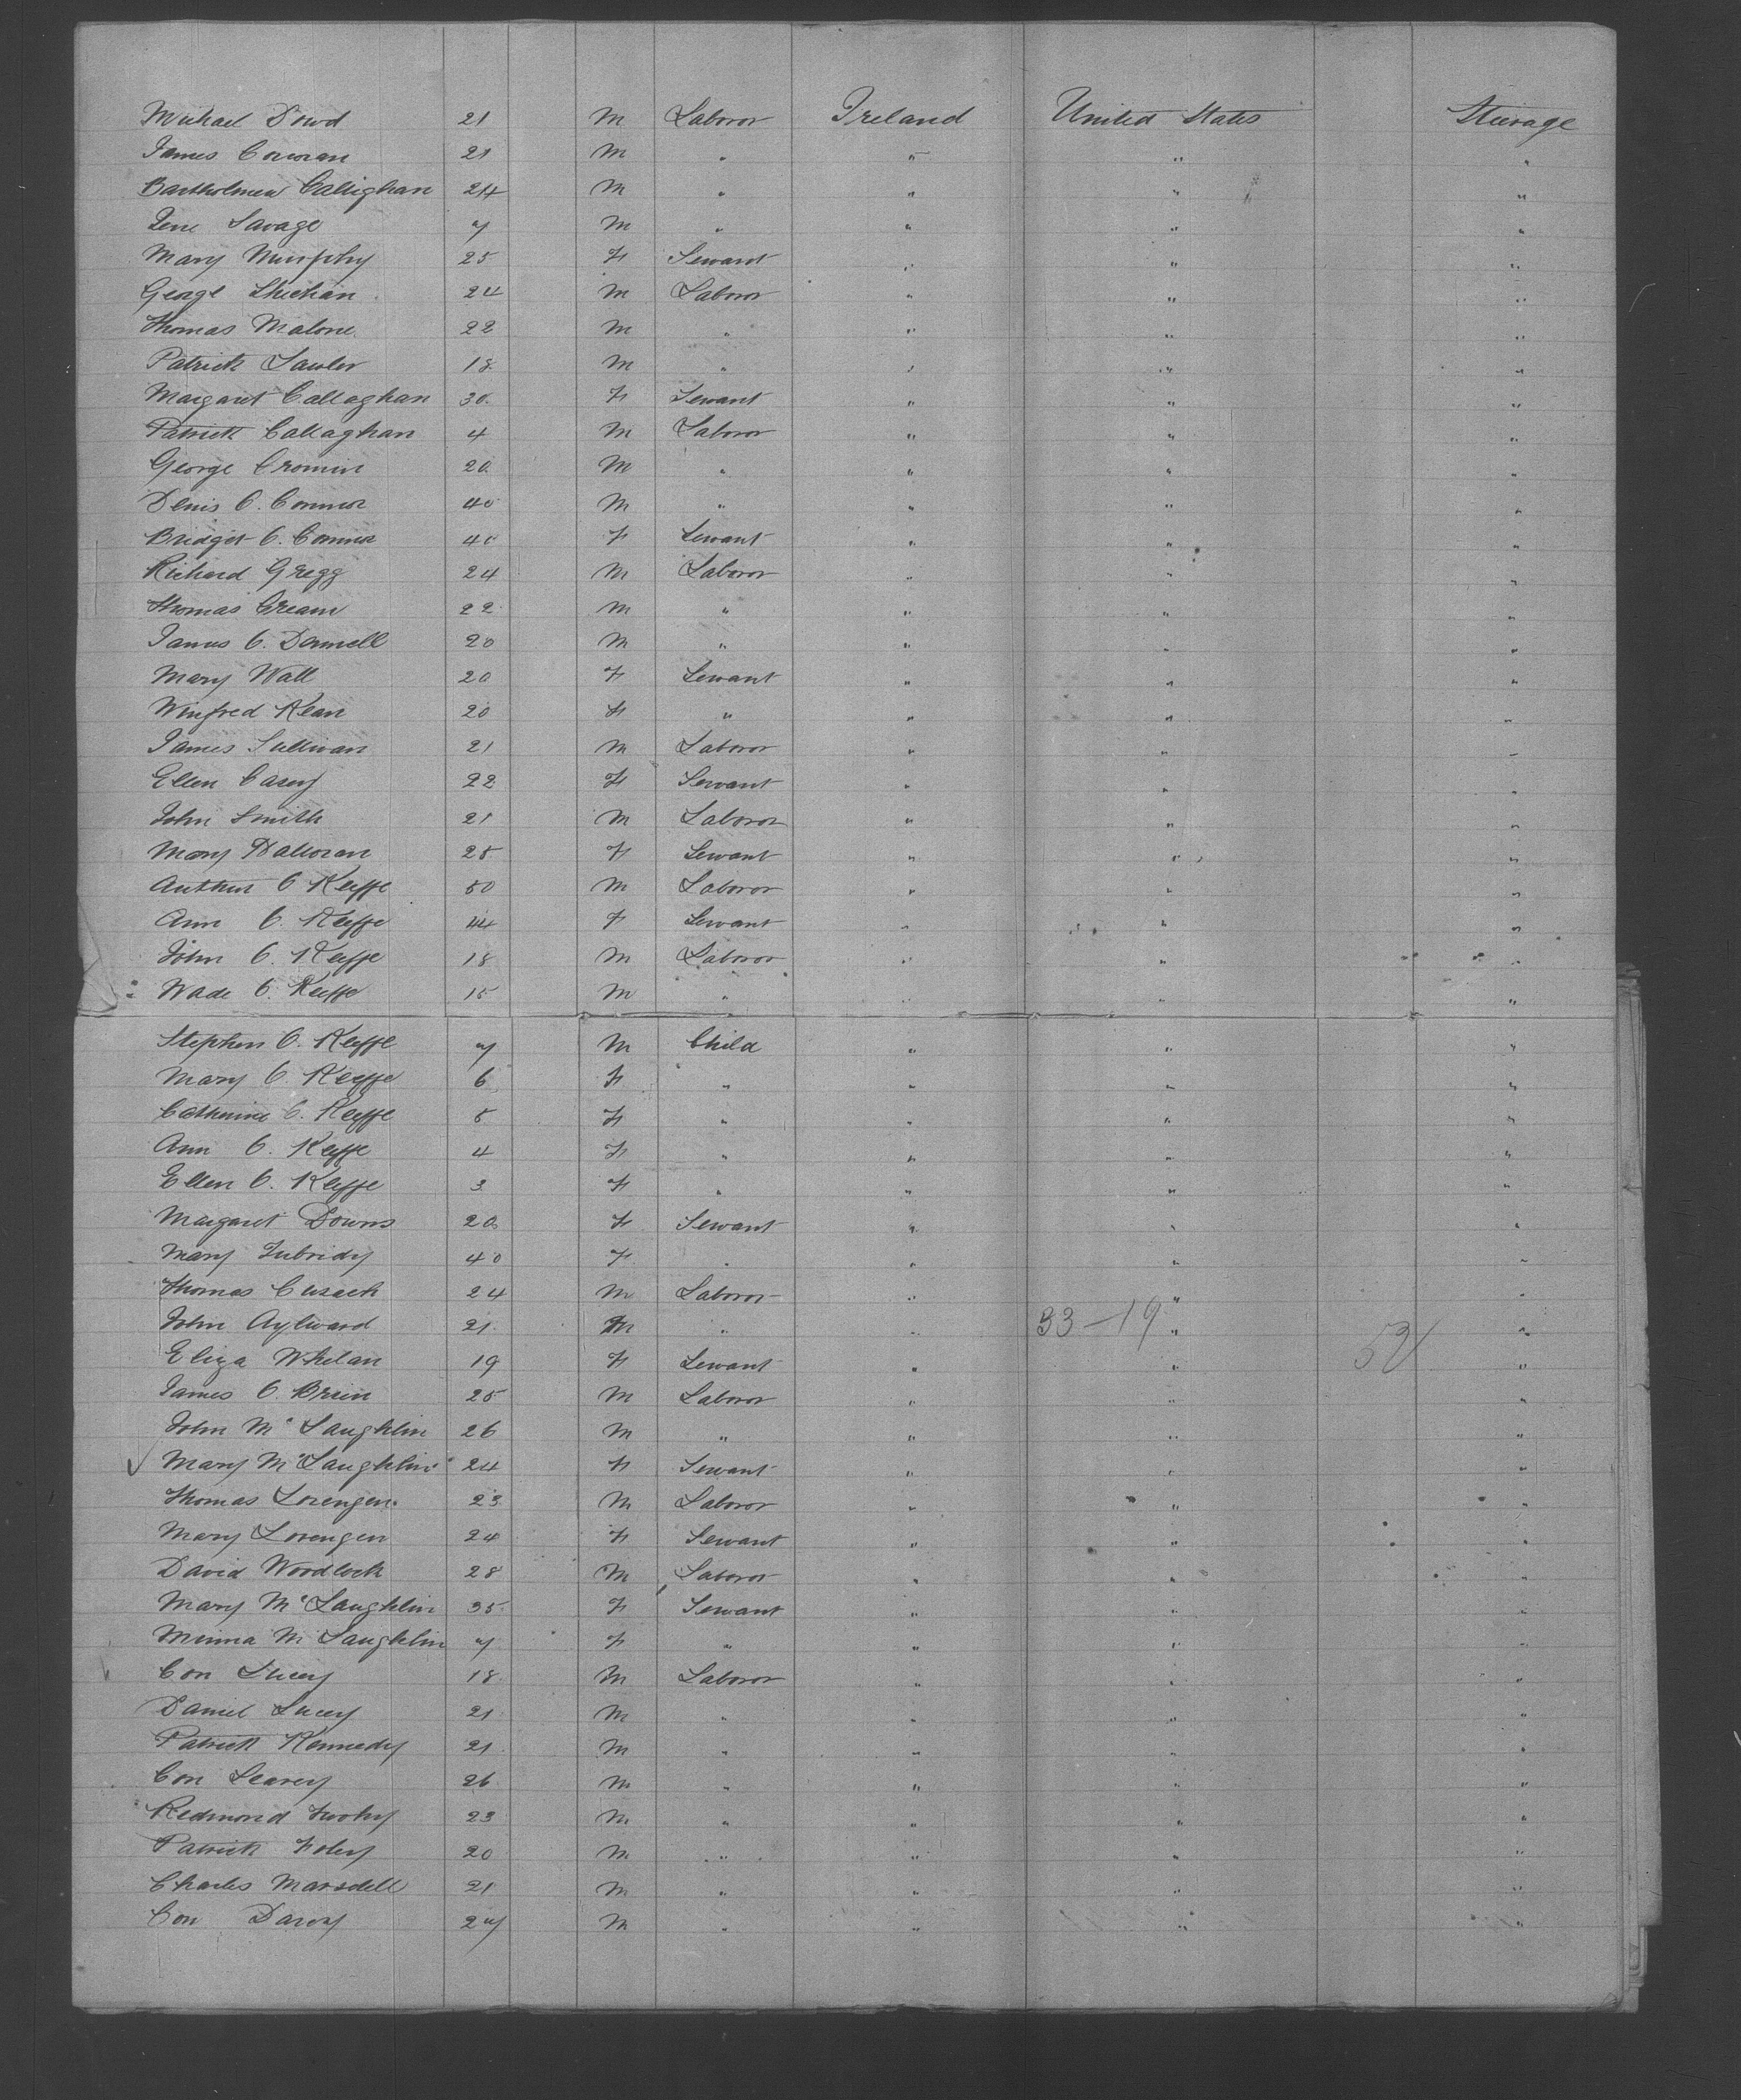 Michael Dowd 21 M Laboror Ireland United States Steerage
James Corcoran 21 M " " " "
Bartholmew Callighan 24 M " " " "
Savage 7 M " " " "
Mary Murphy 25 F Servant " " "
George Shichan 24 M Laboror " " "
Thomas Malone 22 M " " " "
Patrick Lawlor 18 M " " " "
Margaret Callaghan 30 F Servant " " "
Patrick Callaghan 4 M Laboror " " "
George Cromin 20 M " " " "
Denis O. Connor 40 M " " " "
Bridget O. Connor 40 F Servant " " "
Richard Gregg 24 M Laboror " " "
Thomas Cream 22 M " " " "
James O. Donnell 20 M " " " "
Mary Wall 20 F Servant " " "
Winfred Kean 20 F " " " "
James Sullivan 21 M Laboror " " "
Ellen Casey 22 F Servant " " "
John Smith 21 M Laboror " " "
Mary Halloran 25 F Servant " " "
Arthur O Keffe 50 M Laboror " " "
Ann O. Keffe 44 F Servant " " "
John O. Keffe 18 M Laboror " " "
Wade O. Keffe 15 M " " " "
Stephen O. Keffe 7 M Child " " "
Mary O. Keffe 6 F " " " "
Catherine O. Keffe 5 F " " " "
Ann O. Keffe 4 F " " " "
Ellen O. Keffe 3 F " " " "
Margaret Downs 20 F Servant " " "
Mary Tubridy 40 F " " " "
Thomas Cusack 24 M Laboror " " "
John Aylward 21 M " " 33-19 " "
Eliza Whelan 19 F Servant " " 52 "
James O. Brien 25 M Laboror " " "
John Mc Laughlin 26 M " " " "
Mary Mc Laughlin 24 F Servant " " "
Thomas Lorengen 23 M Laboror " " "
Mary Lorengen 24 F Servant " " "
David Woodlock 28 M Laboror " " "
Mary Mc Laughlin 35 F Servant " " "
Minna Mc Laughlin 7 F " " " "
Con Lucey 18 M Laboror " " "
Daniel Lucey 21 M " " " "
Patrick Kennedy 21 M " " " "
Con Learey 26 M " " " "
Redmond Twohy 23 M " " " "
Patrick Foley 20 M " " " "
Charles Marsdell 21 M " " " "
Con Darcy 27 M " " " "